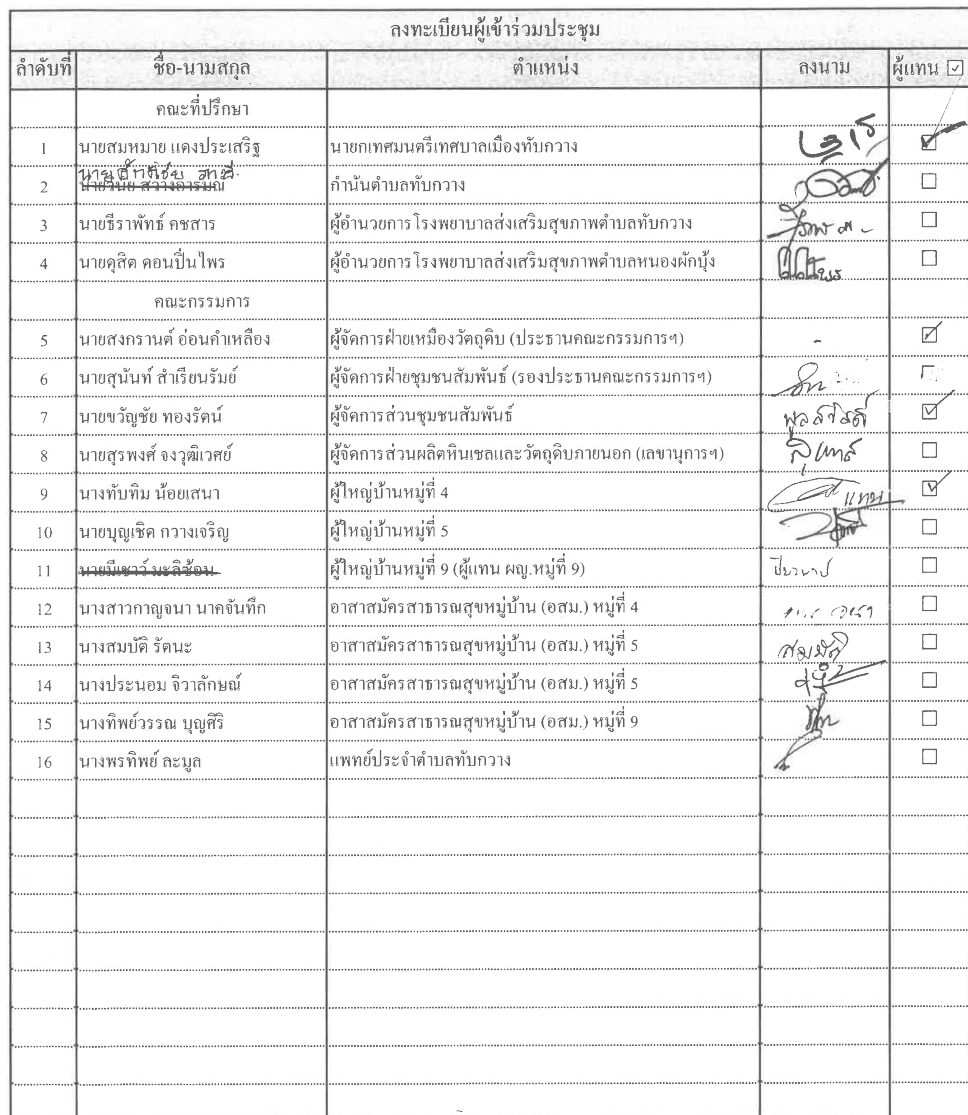 ลงทะเบียนผู้เข้าร่วมประชุม
ลำดับที่ ชื่อ-นามสกุล ตำแหน่ง ลงนาม ผู้แทน ☑
คณะที่ปรึกษา
1 นายสมหมาย แดงประเสริฐ นายกเทศมนตรีเทศบาลเมืองทับกวาง ☑
2 นายวินัย สว่างอารมณ์ กำนันตำบลทับกวาง ☐
3 นายธีราพัทธ์ คชสาร ผู้อำนวยการโรงพยาบาลส่งเสริมสุขภาพตำบลทับกวาง ☐
4 นายดุสิต ดอนปิ่นไพร ผู้อำนวยการโรงพยาบาลส่งเสริมสุขภาพตำบลหนองผักบุ้ง ☐
คณะกรรมการ
5 นายสงกรานต์ อ่อนคำเหลือง ผู้จัดการฝ่ายเหมืองวัตถุดิบ (ประธานคณะกรรมการฯ) - ☑
6 นายสุนันท์ สำเรียนรัมย์ ผู้จัดการฝ่ายชุมชนสัมพันธ์ (รองประธานคณะกรรมการฯ) ☐
7 นายขวัญชัย ทองรัตน์ ผู้จัดการส่วนชุมชนสัมพันธ์ ☑
8 นายสุรพงศ์ จงวุฒิเวศย์ ผู้จัดการส่วนผลิตหินเชลและวัตถุดิบภายนอก (เลขานุการฯ) ☐
9 นางทับทิม น้อยเสนา ผู้ใหญ่บ้านหมู่ที่ 4 แทน ☑
10 นายบุญเชิด กวางเจริญ ผู้ใหญ่บ้านหมู่ที่ 5 ☐
11 นายมีเชาว์ มะลิซ้อน ผู้ใหญ่บ้านหมู่ที่ 9 (ผู้แทน ผญ.หมู่ที่ 9) ☐
12 นางสาวกาญจนา นาคจันทึก อาสาสมัครสาธารณสุขหมู่บ้าน (อสม.) หมู่ที่ 4 ☐
13 นางสมบัติ รัตนะ อาสาสมัครสาธารณสุขหมู่บ้าน (อสม.) หมู่ที่ 5 สมบัติ ☐
14 นางประนอม จิวาลักษณ์ อาสาสมัครสาธารณสุขหมู่บ้าน (อสม.) หมู่ที่ 5 ☐
15 นางทิพย์วรรณ บุญศิริ อาสาสมัครสาธารณสุขหมู่บ้าน (อสม.) หมู่ที่ 9 ☐
16 นางพรทิพย์ ละมูล แพทย์ประจำตำบลทับกวาง ☐